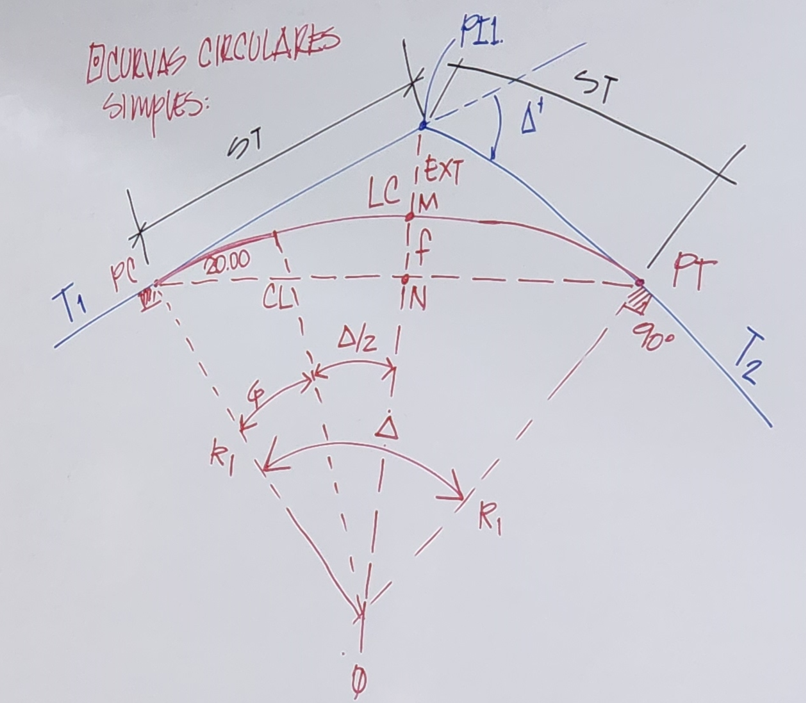 CURVAS CIRCULARES
SIMPLES:
PI1
ST
ST
Δ'
EXT
LC
M
f
PC
20.00
PT
T1
CL
N
90°
T2
Δ/2
φ
Δ
R1
R1
O